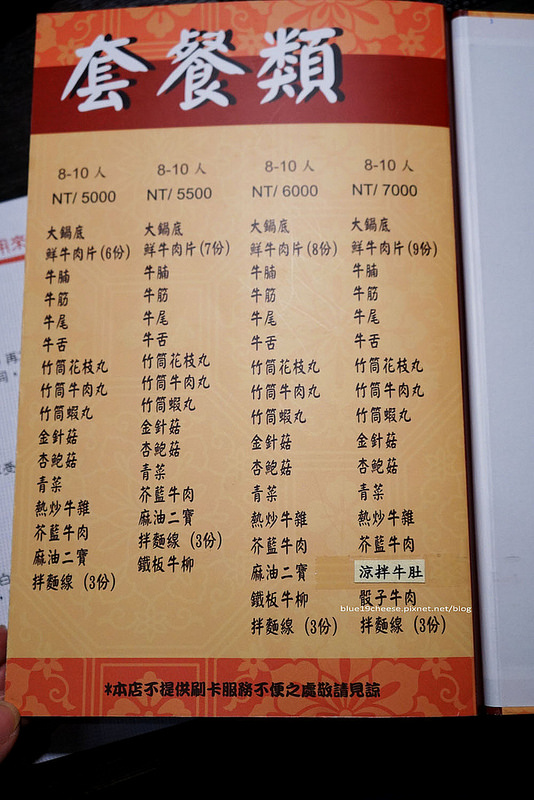 套餐類
8-10 人
NT/ 5000
大鍋底
鮮牛肉片(6份)
牛腩
牛筋
牛尾
牛舌
竹筒花枝丸
竹筒牛肉丸
竹筒蝦丸
金針菇
杏鮑菇
青菜
熱炒牛雜
芥藍牛肉
麻油二寶
拌麵線 (3份)
8-10 人
NT/ 5500
大鍋底
鮮牛肉片(7份)
牛腩
牛筋
牛尾
牛舌
竹筒花枝丸
竹筒牛肉丸
竹筒蝦丸
金針菇
杏鮑菇
青菜
芥藍牛肉
麻油二寶
拌麵線 (3份)
鐵板牛柳
8-10 人
NT/ 6000
大鍋底
鮮牛肉片(8份)
牛腩
牛筋
牛尾
牛舌
竹筒花枝丸
竹筒牛肉丸
竹筒蝦丸
金針菇
杏鮑菇
青菜
熱炒牛雜
芥藍牛肉
麻油二寶
鐵板牛柳
拌麵線 (3份)
8-10 人
NT/ 7000
大鍋底
鮮牛肉片(9份)
牛腩
牛筋
牛尾
牛舌
竹筒花枝丸
竹筒牛肉丸
竹筒蝦丸
金針菇
杏鮑菇
青菜
熱炒牛雜
芥藍牛肉
涼拌牛肚
骰子牛肉
拌麵線 (3份)
blue19cheese.pixnet.net/blog
*本店不提供刷卡服務不便之處敬請見諒
用來
再
受
白